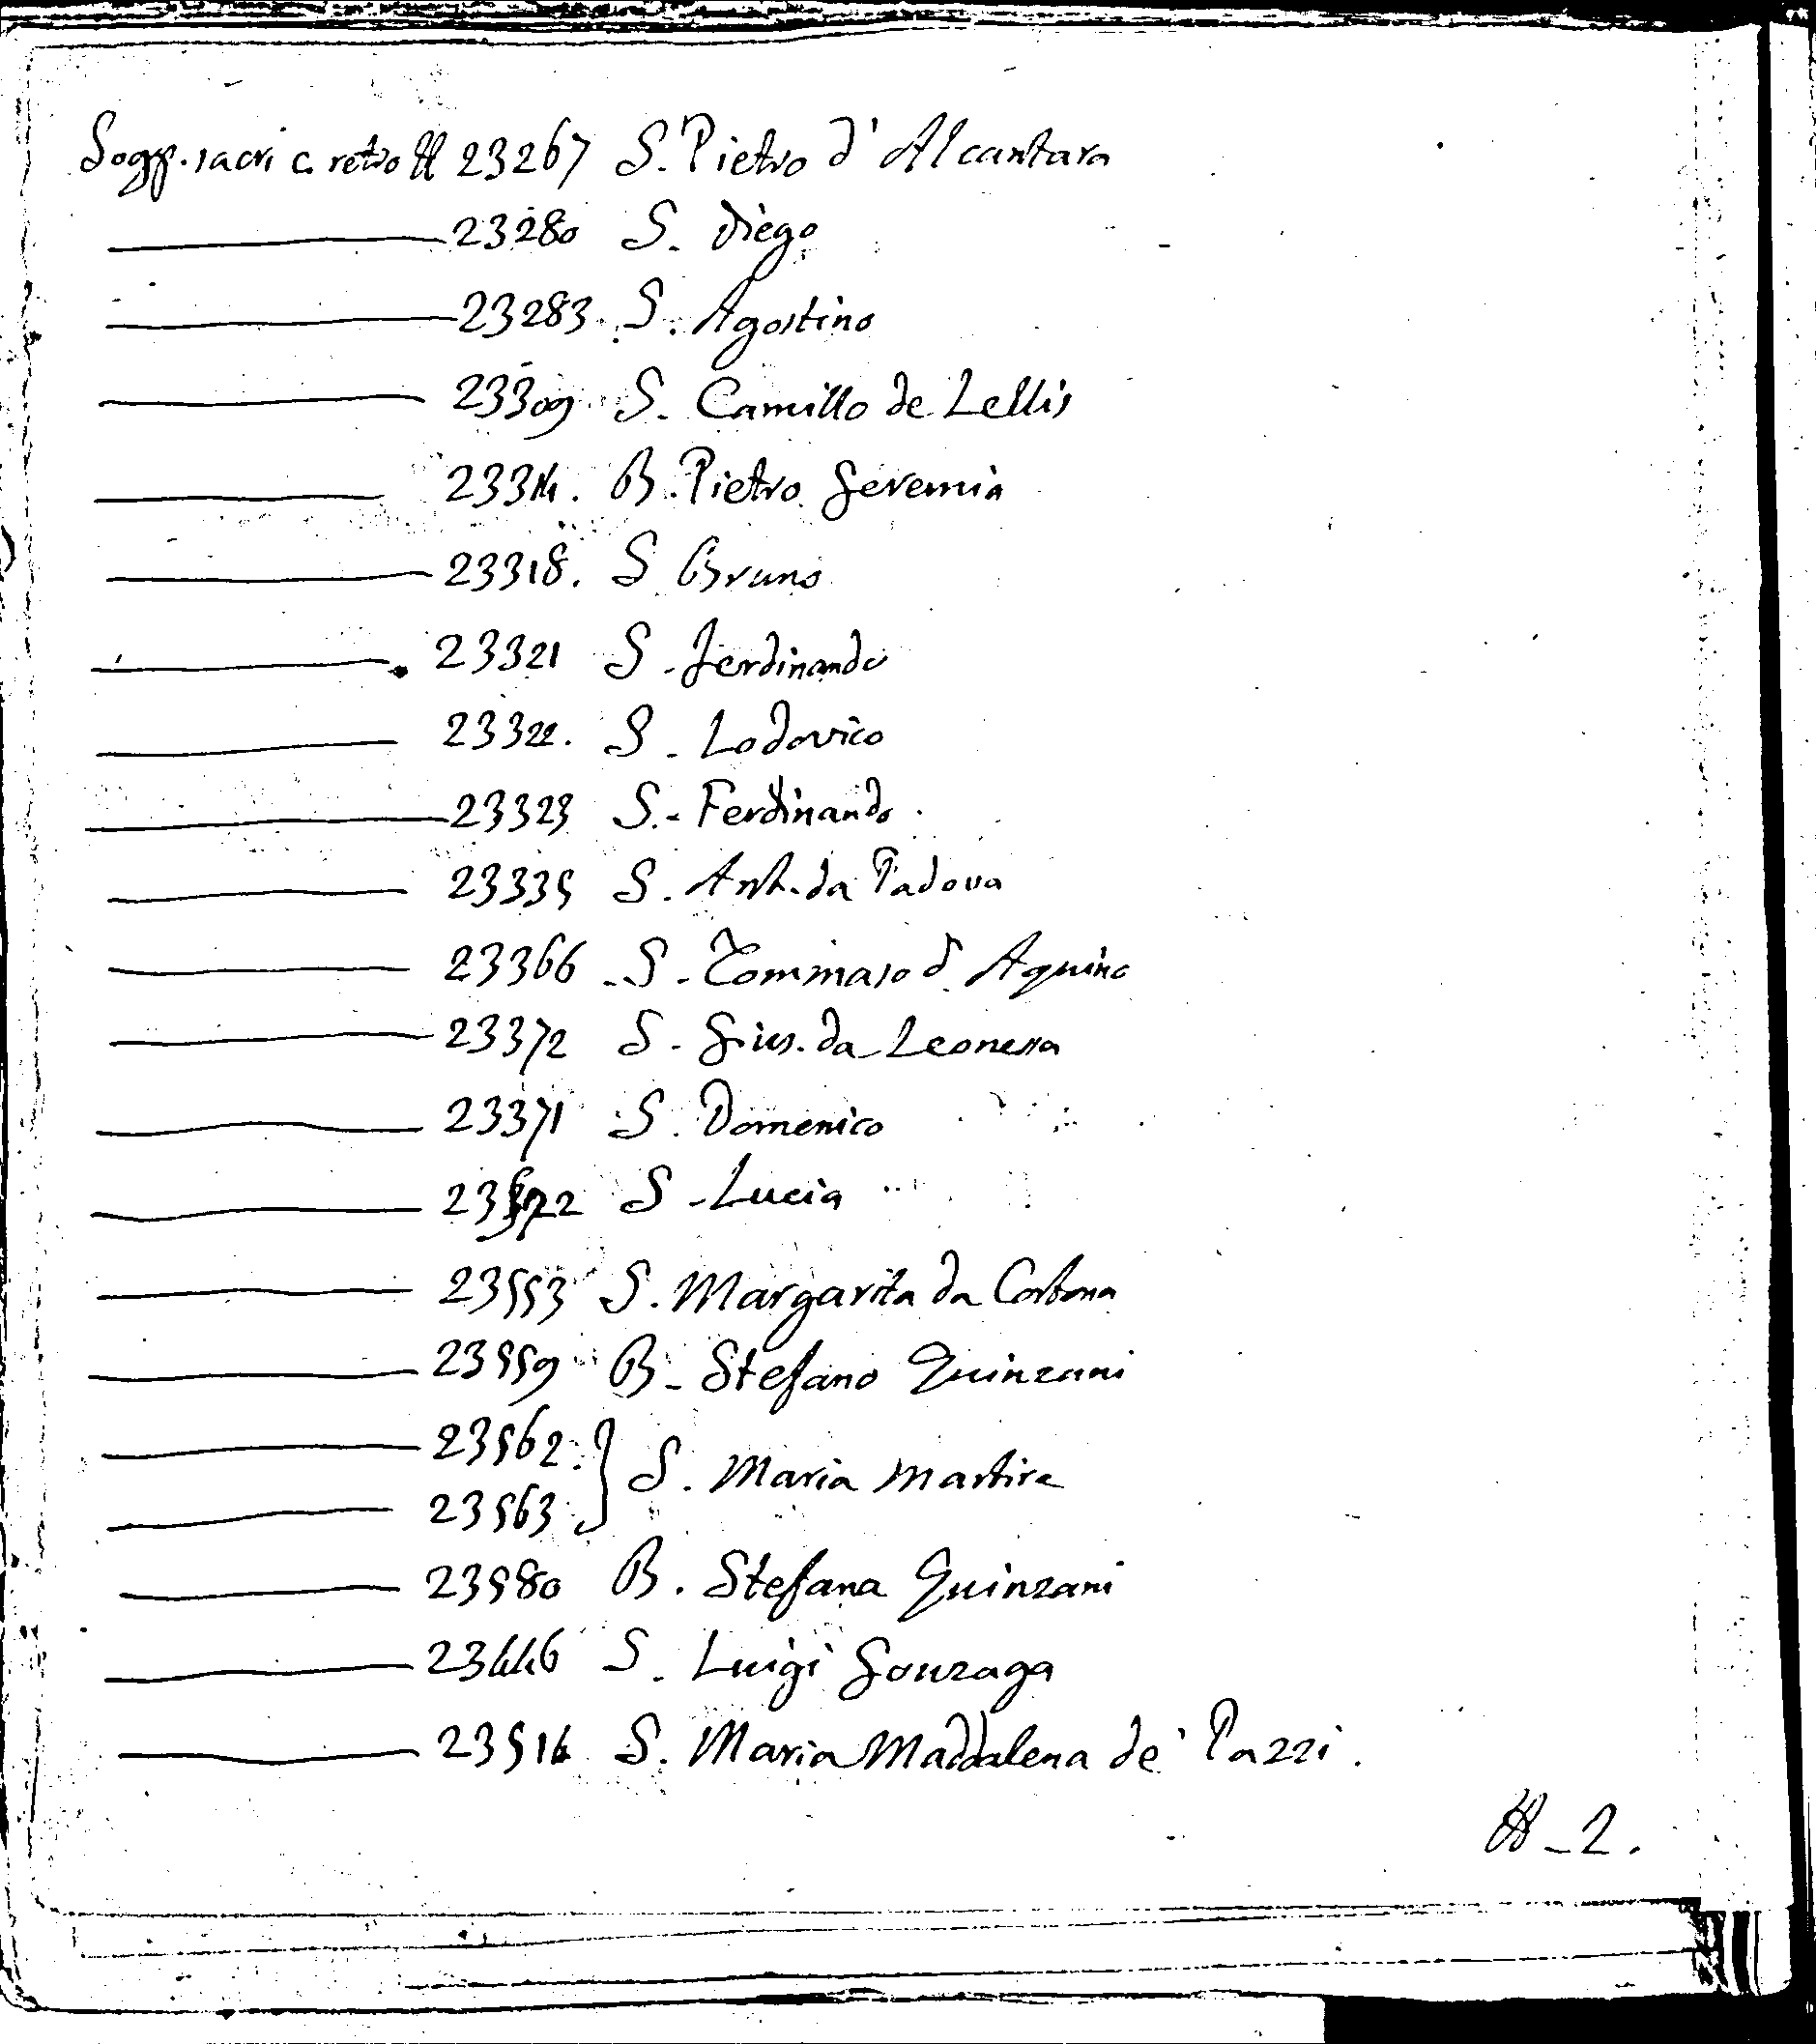 Sogg. sacri c. retro H 23267 S. Pietro d' Alcantara
23280 S. Diego
23283. S. Agostino
23309 S. Camillo de Lellis
23314. B. Pietro Geremia
23318. S Bruno
23321 S. Ferdinando
23322. S. Lodovico
23323 S. Ferdinando.
23335 S. Ant. da Padova
23366 S. Tommaso d' Aquino
23372 S. Gius. da Leonessa
23371 S. Domenico
S. Lucia
23553 S. Margarita da Cortona
23559 B. Stefano Quinzani
23562. } S. Maria Martire
23563
23580 B. Stefana Quinzani
23446 S. Luigi Gonzaga
23516 S. Maria Maddalena de' Pazzi.
H-2.